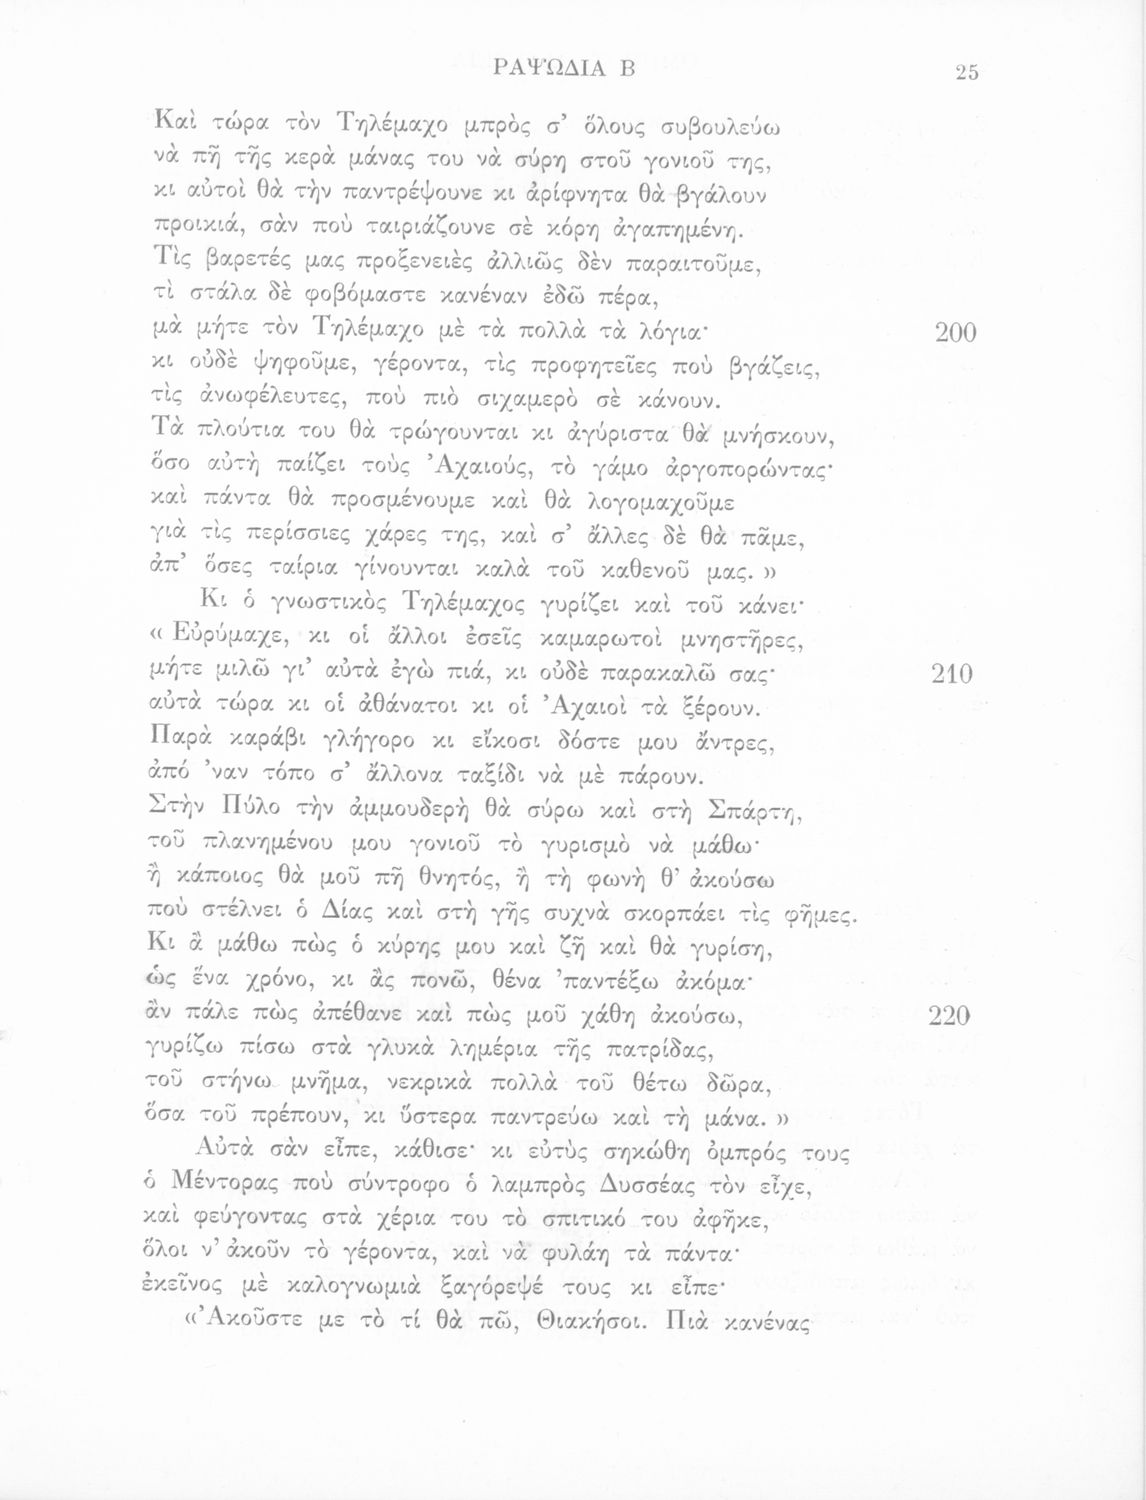 ΡΑΨΩΔΙΑ Β 25
Καὶ τώρα τὸν Τηλέμαχο μπρὸς σ’ ὅλους συβουλεύω
νὰ πῆ τῆς κερὰ μάνας του νὰ σύρη στοῦ γονιοῦ της,
κι αὐτοὶ θὰ τὴν παντρέψουνε κι ἀρίφνητα θὰ βγάλουν
προικιά, σὰν ποὺ ταιριάζουνε σὲ κόρη ἀγαπημένη.
Τὶς βαρετές μας προξενειὲς ἀλλιῶς δὲν παραιτοῦμε,
τὶ στάλα δὲ φοβόμαστε κανέναν ἐδῶ πέρα,
μὰ μήτε τὸν Τηλέμαχο μὲ τὰ πολλὰ τὰ λόγια· 200
κι οὐδὲ ψηφοῦμε, γέροντα, τὶς προφητεῖες ποὺ βγάζεις,
τὶς ἀνωφέλευτες, ποὺ πιὸ σιχαμερὸ σὲ κάνουν.
Τὰ πλούτια του θὰ τρώγουνται κι ἀγύριστα θὰ μνήσκουν,
ὅσο αὐτὴ παίζει τοὺς Ἀχαιούς, τὸ γάμο ἀργοπορώντας·
καὶ πάντα θὰ προσμένουμε καὶ θὰ λογομαχοῦμε
γιὰ τὶς περίσσιες χάρες της, καὶ σ’ ἄλλες δὲ θὰ πᾶμε,
ἀπ’ ὅσες ταίρια γίνουνται καλὰ τοῦ καθενοῦ μας. »
Κι ὁ γνωστικὸς Τηλέμαχος γυρίζει καὶ τοῦ κάνει·
« Εὐρύμαχε, κι οἱ ἄλλοι ἐσεῖς καμαρωτοὶ μνηστῆρες,
μήτε μιλῶ γι’ αὐτὰ ἐγὼ πιά, κι οὐδὲ παρακαλῶ σας· 210
αὐτὰ τώρα κι οἱ ἀθάνατοι κι οἱ Ἀχαιοὶ τὰ ξέρουν.
Παρὰ καράβι γλήγορο κι εἴκοσι δόστε μου ἄντρες,
ἀπό ’ναν τόπο σ’ ἄλλονα ταξίδι νὰ μὲ πάρουν.
Στὴν Πύλο τὴν ἀμμουδερὴ θὰ σύρω καὶ στὴ Σπάρτη,
τοῦ πλανημένου μου γονιοῦ τὸ γυρισμὸ νὰ μάθω·
ἢ κάποιος θὰ μοῦ πῆ θνητός, ἢ τὴ φωνὴ θ’ ἀκούσω
ποὺ στέλνει ὁ Δίας καὶ στὴ γῆς συχνὰ σκορπάει τὶς φῆμες.
Κι ἂ μάθω πὼς ὁ κύρης μου καὶ ζῆ καὶ θὰ γυρίση,
ὡς ἕνα χρόνο, κι ἂς πονῶ, θένα ’παντέξω ἀκόμα·
ἂν πάλε πὼς ἀπέθανε καὶ πὼς μοῦ χάθη ἀκούσω, 220
γυρίζω πίσω στὰ γλυκὰ λημέρια τῆς πατρίδας,
τοῦ στήνω μνῆμα, νεκρικὰ πολλὰ τοῦ θέτω δῶρα,
ὅσα τοῦ πρέπουν, κι ὕστερα παντρεύω καὶ τὴ μάνα. »
Αὐτὰ σὰν εἶπε, κάθισε· κι εὐτὺς σηκώθη ὀμπρός τους
ὁ Μέντορας ποὺ σύντροφο ὁ λαμπρὸς Δυσσέας τὸν εἶχε,
καὶ φεύγοντας στὰ χέρια του τὸ σπιτικό του ἀφῆκε,
ὅλοι ν’ ἀκοῦν τὸ γέροντα, καὶ νὰ φυλάη τὰ πάντα·
ἐκεῖνος μὲ καλογνωμιὰ ξαγόρεψέ τους κι εἶπε·
« Ἀκοῦστε με τὸ τί θὰ πῶ, Θιακήσοι. Πιὰ κανένας